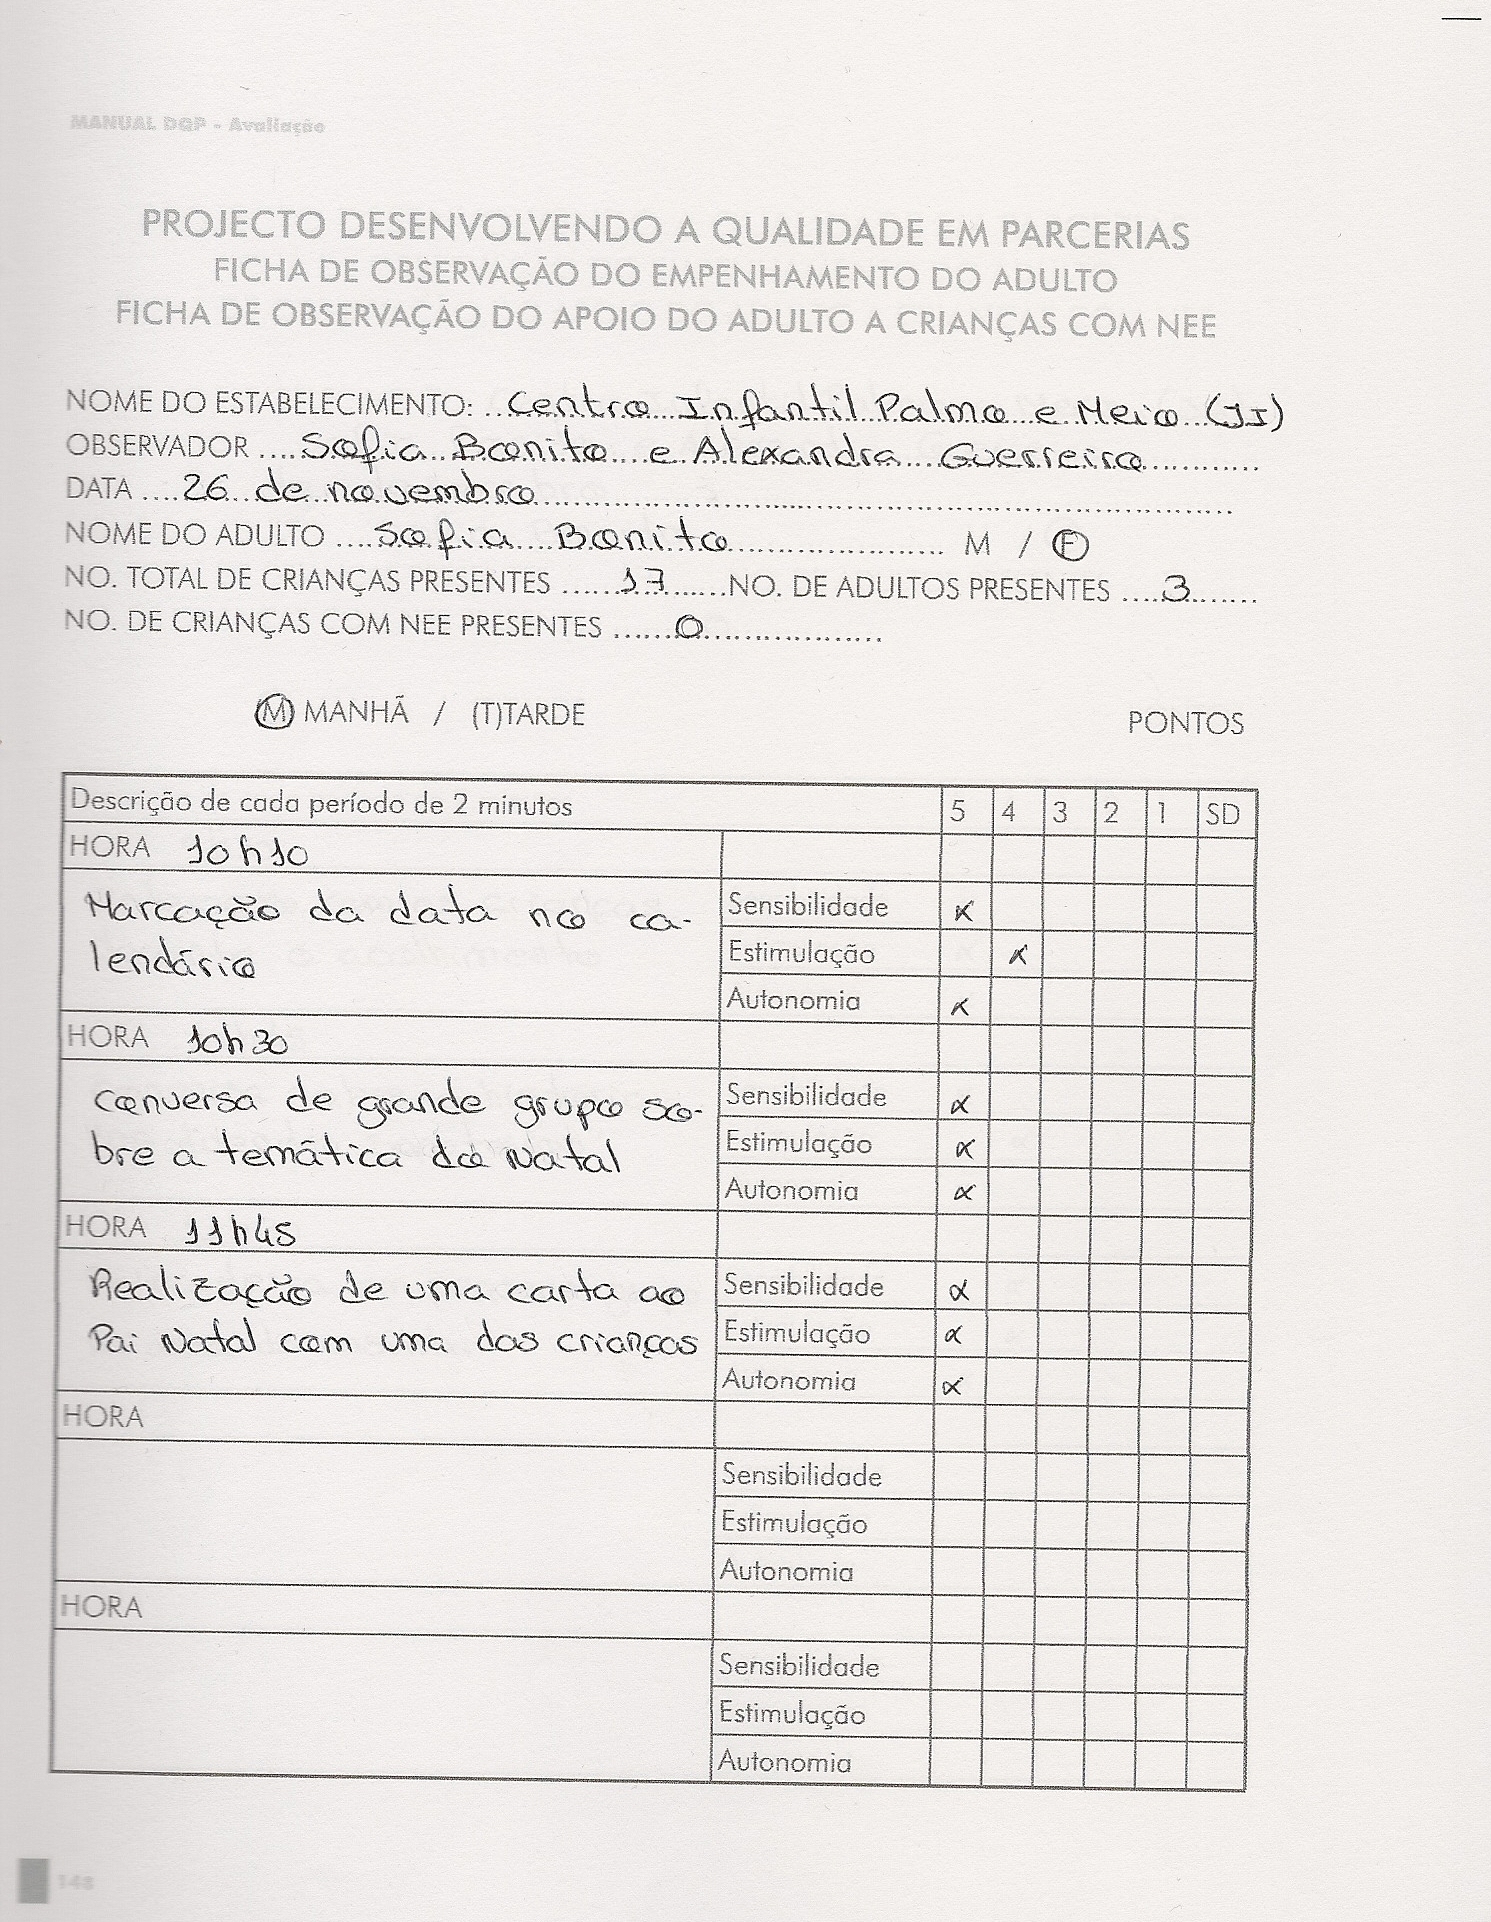 MANUAL DQP - Avaliação
PROJECTO DESENVOLVENDO A QUALIDADE EM PARCERIAS
FICHA DE OBSERVAÇÃO DO EMPENHAMENTO DO ADULTO
FICHA DE OBSERVAÇÃO DO APOIO DO ADULTO A CRIANÇAS COM NEE
NOME DO ESTABELECIMENTO: Centro Infantil Palmo e Meio (JI)
OBSERVADOR Sofia Bonito e Alexandra Guerreiro
DATA 26 de novembro
NOME DO ADULTO Sofia Bonito M / F
NO. TOTAL DE CRIANÇAS PRESENTES 17 NO. DE ADULTOS PRESENTES 3
NO. DE CRIANÇAS COM NEE PRESENTES 0
(M) MANHÃ / (T)TARDE PONTOS
Descrição de cada período de 2 minutos 5 4 3 2 1 SD
HORA 10h10
Marcação da data no ca-
lendário
Sensibilidade x
Estimulação x
Autonomia x
HORA 10h30
Conversa de grande grupo so-
bre a temática do Natal
Sensibilidade x
Estimulação x
Autonomia x
HORA 11h45
Realização de uma carta ao
Pai Natal com uma das crianças
Sensibilidade x
Estimulação x
Autonomia x
HORA
Sensibilidade
Estimulação
Autonomia
HORA
Sensibilidade
Estimulação
Autonomia
148